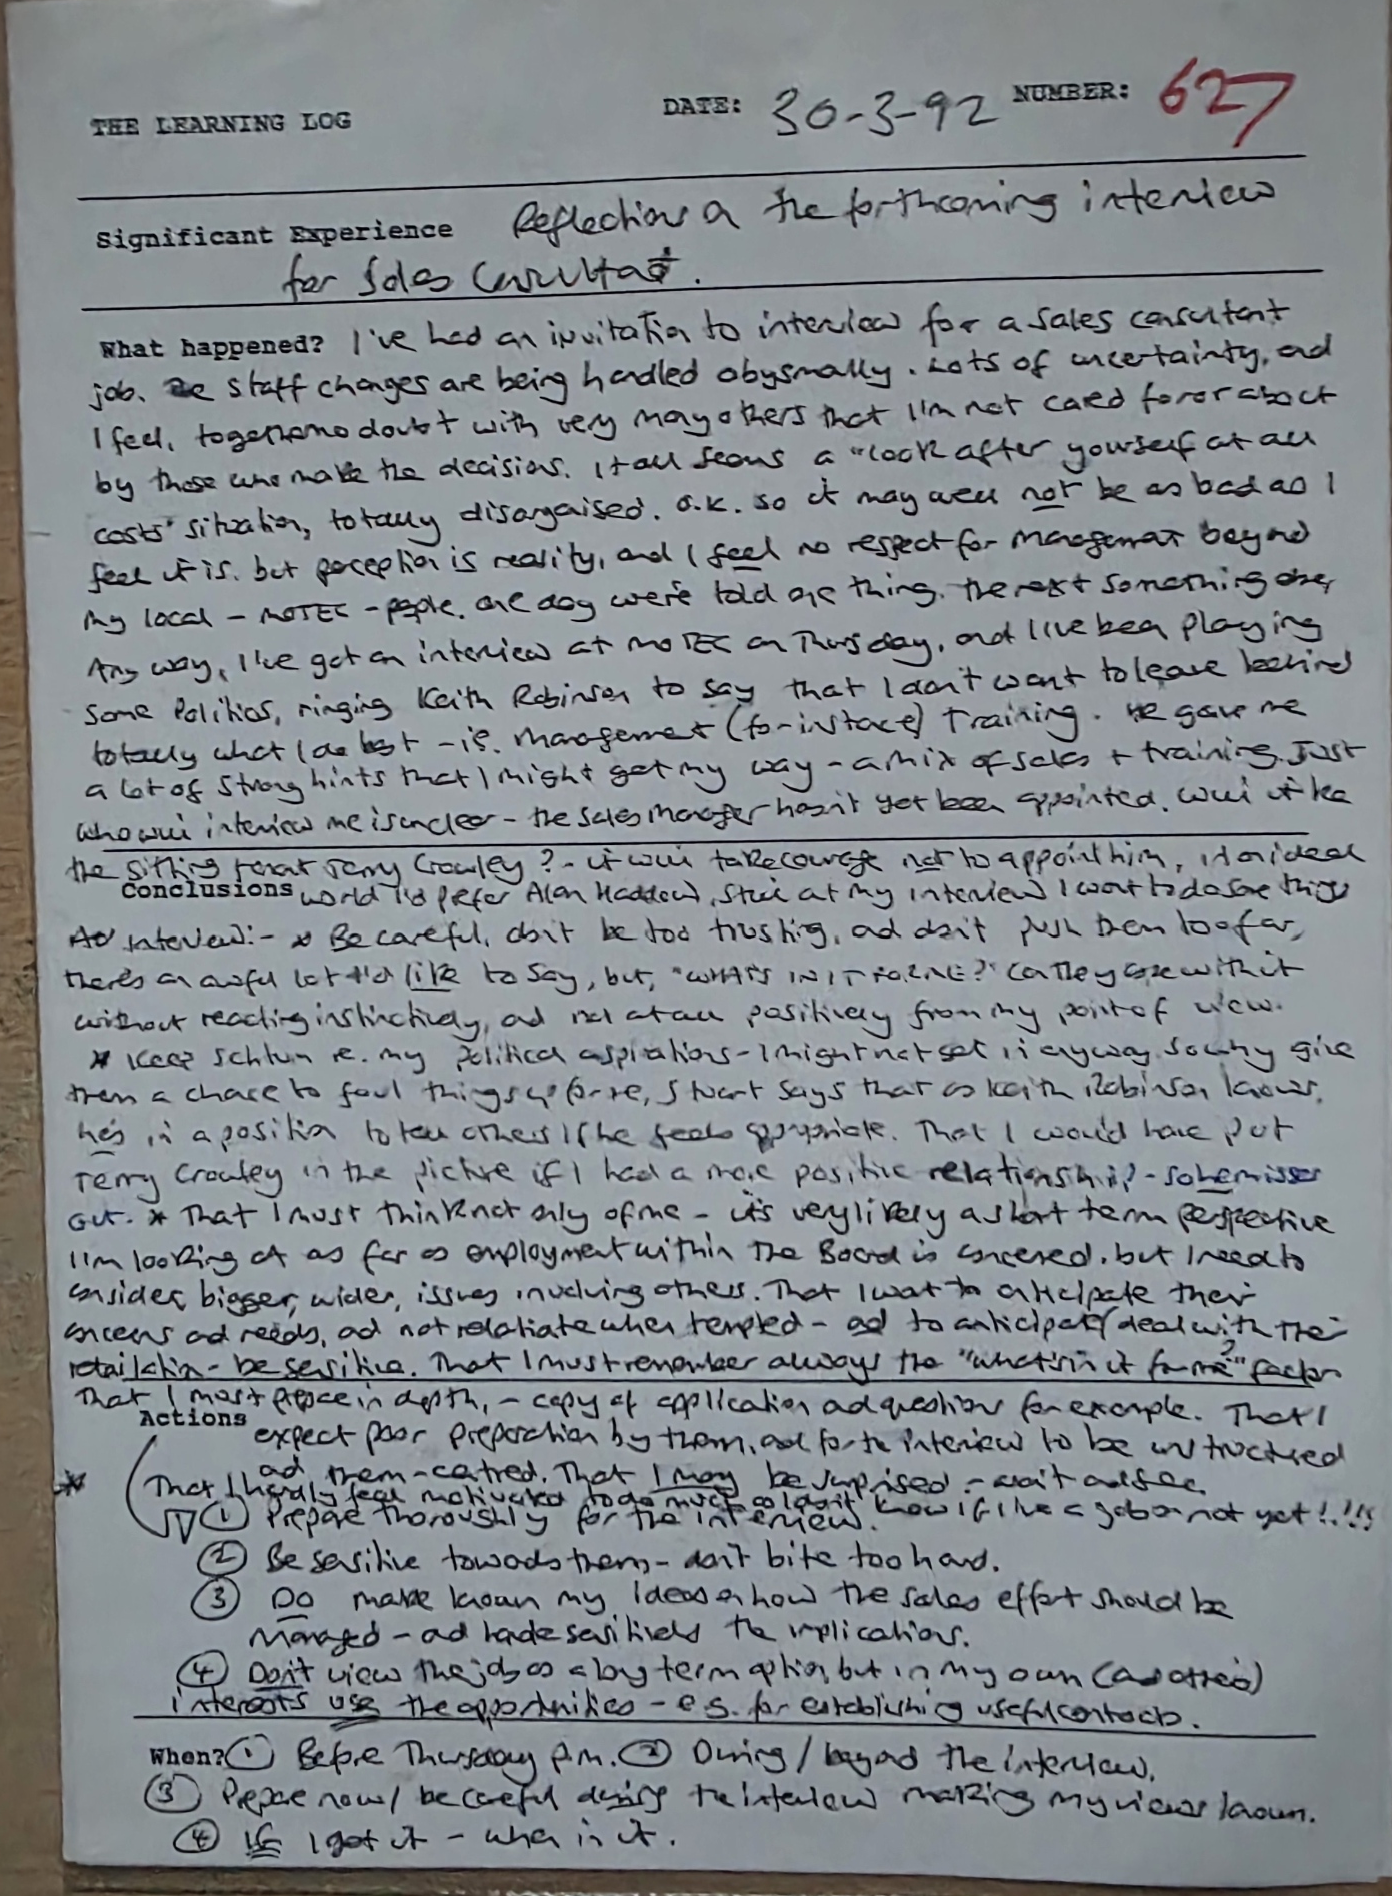 THE LEARNING LOG DATE: 30-3-92 NUMBER: 627
Significant Experience Reflections on the forthcoming interview
for Sales Consultant.
What happened? I've had an invitation to interview for a sales consultant
job. staff changes are being handled abysmally. Lots of uncertainty, and
I feel, together no doubt with very many others that I'm not cared for or about
by those who make the decisions. It all seems a "look after yourself at all
costs" situation, totally disorganised. O.K. so it may well not be as bad as I
feel it is. but perception is reality, and I feel no respect for management beyond
my local - MOTEC - people. One day we're told one thing. The next something else,
Any way, I've got an interview at MOTEC on Thursday, and I've been playing
some Politics, ringing Keith Robinson to say that I don't want to leave behind
totally what I do best - ie. management (for instance) Training. He gave me
a lot of strong hints that I might get my way - a mix of sales + training. Just
who will interview me is unclear - the sales manager hasn't yet been appointed. Will it be
the sitting tenant Terry Crowley? - it will take courage not to appoint him, in an ideal
Conclusions world I'd prefer Alan Haddow, still at my interview I want to do some things
At Interview:- * Be careful, don't be too trusting, and don't push them too far,
there's an awful lot I'd like to say, but, "WHAT'S IN IT FOR ME?" Can they cope with it
without reacting instinctively, and not at all positively from my point of view.
* Keep schtum re. my political aspirations - I might not get in anyway. So why give
them a chance to foul things up for me, Stuart says that as Keith Robinson knows,
he's in a position to tell others if he feels appropriate. That I would have put
Terry Crowley in the picture if I had a more positive relationship - so he misses
out. * That I must think not only of me - it's very likely a short term perspective
I'm looking at as far as employment within the Board is concerned. but I need to
consider, bigger, wider, issues involving others. That I want to anticipate their
concerns and needs, and not retaliate when tempted - and to anticipate/deal with their
retaliation - be sensitive. That I must remember always the "what's in it for me?" factor
That I must prepare in depth, - copy of application and questions for example. That I
Actions expect poor preparation by them, and for the interview to be unstructured
and them-centred. That I may be surprised - wait and see.
* That I hardly feel motivated to do much as I don't know if I've a job or not yet!!!!
① Prepare thoroughly for the interview.
② Be sensitive towards them - don't bite too hard.
③ Do make known my ideas on how the sales effort should be
Managed - and handle sensitively the implications.
④ Don't view the job as a long term option, but in my own (and others)
interests use the opportunities - e.g. for establishing useful contacts.
When? ① Before Thursday p.m. ② During / beyond the interview.
③ Prepare now / be careful during the interview making my views known.
④ If I get it - when in it.